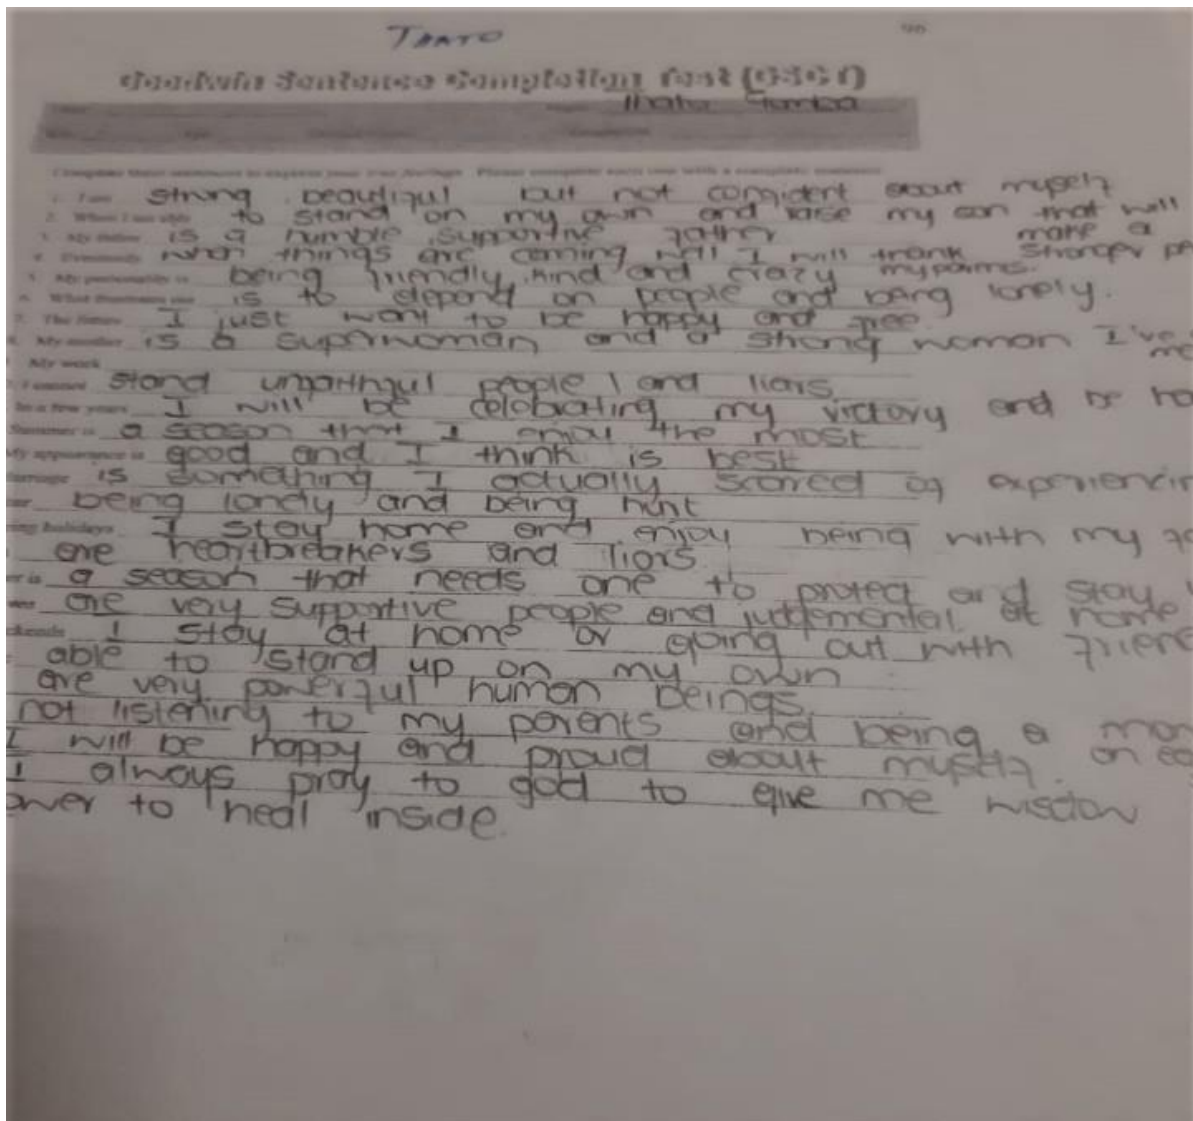 THATO
Goodwin Sentence Completion Test (GSCT)
Thato
Complete these sentences to express your true feelings. Please complete every one with a complete sentence.
1. I am strong beautiful but not congident about myself
2. When I am able to stand on my own and raise my son that will make a stronger
3. My father is a humble supportive father
4. when things are coming well I will thank my parents.
5. My personality is being friendly, kind and crazy
6. What frustrates me is to depend on people and being lonely.
7. The future I just want to be happy and free
8. My mother is a superwoman and a strong woman I've
My work
I cannot stand ungaithgul people and liars
In a few years I will be celebrating my victory and be
Summer is a season that I enjoy the most
My appearance is good and I think is best
is something I actually scared of
being lonely and being hurt
holidays I stay home and enjoy being with my
are heartbreakers and liars
is a season that needs one to protect and stay
are very supportive people and judgemental at home
I stay at home or going out with
able to stand up on my own
are very powerful human beings.
not listening to my parents and being a
I will be happy and proud about myself. on
I always pray to god to give me
to heal inside.